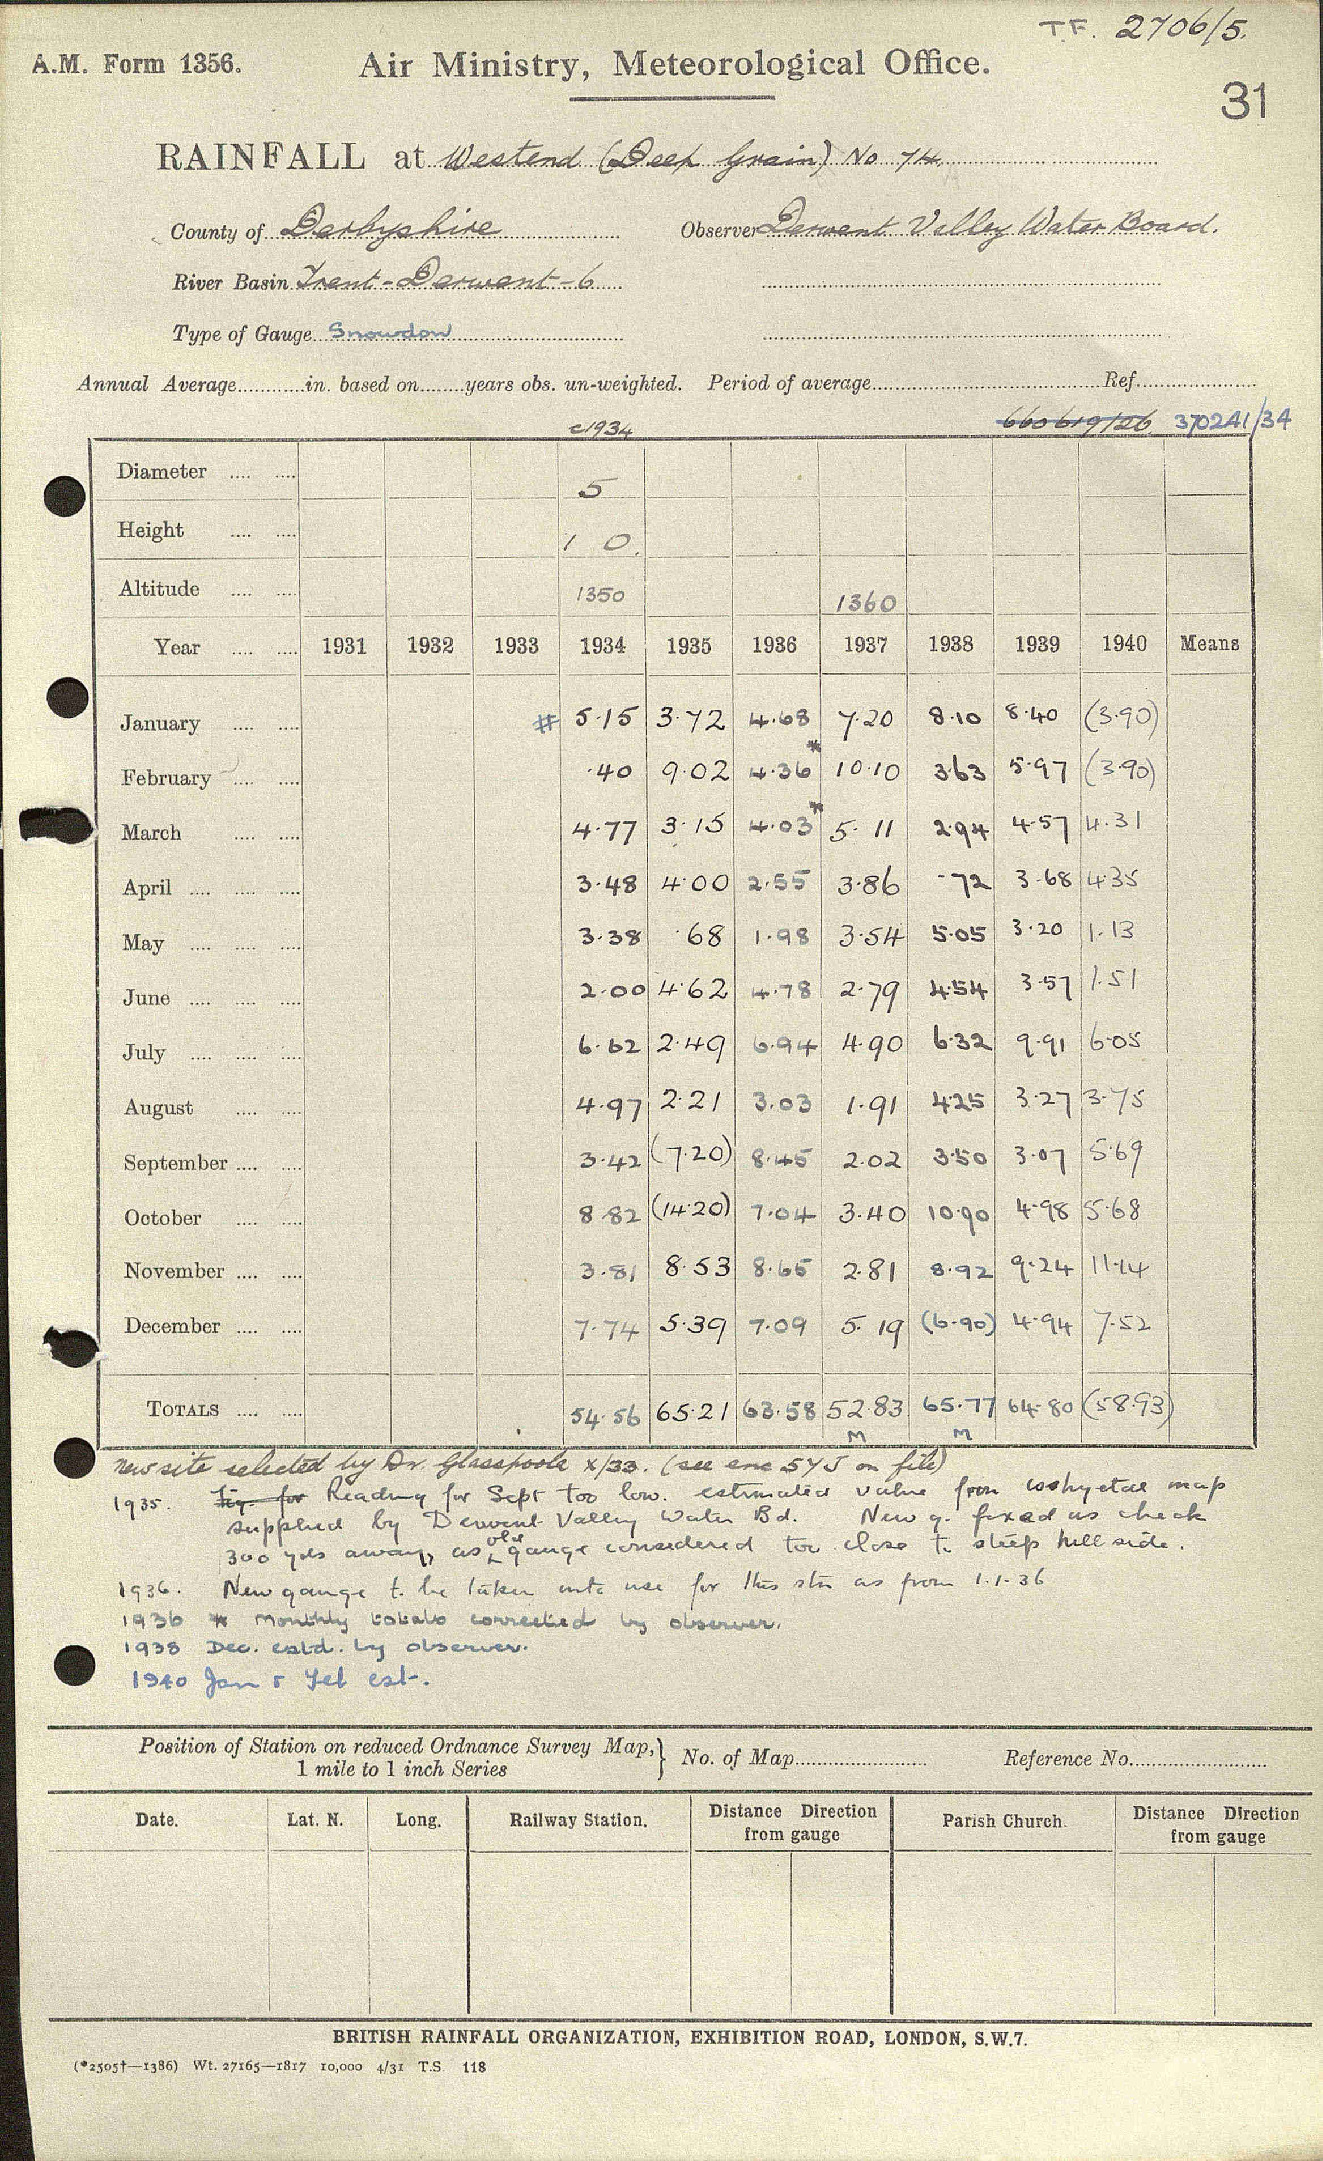 T.F. 2706/5.
A.M. Form 1356. Air Ministry, Meteorological Office.
31
RAINFALL at Westend (Deep Grain) No 74
County of Derbyshire Observer Derwent Valley Water Board.
River Basin Trent - Derwent - 6
Type of Gauge Snowdon
Annual Average in. based on years obs. un-weighted. Period of average Ref.
c1934 660619/26 370241/34
Diameter 5
Height 1 0
Altitude 1350 1360
Year 1931 1932 1933 1934 1935 1936 1937 1938 1939 1940 Means
January # 5.15 3.72 4.68 7.20 8.10 8.40 (3.90)
February .40 9.02 4.36* 10.10 3.63 5.97 (3.90)
March 4.77 3.15 4.03* 5.11 2.94 4.57 4.31
April 3.48 4.00 2.55 3.86 .72 3.68 4.35
May 3.38 .68 1.98 3.54 5.05 3.20 1.13
June 2.00 4.62 4.78 2.79 4.54 3.57 1.51
July 6.62 2.49 6.94 4.90 6.32 9.91 6.05
August 4.97 2.21 3.03 1.91 4.25 3.27 3.75
September 3.42 (7.20) 8.45 2.02 3.50 3.07 5.69
October 8.82 (14.20) 7.04 3.40 10.90 4.98 5.68
November 3.81 8.53 8.65 2.81 8.92 9.24 11.14
December 7.74 5.39 7.09 5.19 (6.90) 4.94 7.52
TOTALS 54.56 65.21 63.58 52.83 65.77 64.80 (58.93)
M M
New site selected by Dr. Glasspoole X/33. (see enc 57J on file)
1935. Fig. for Reading for Sept too low. estimated value from isohyetal map
supplied by Derwent Valley Water Bd. New g. fixed as check
300 yds away, as old gauge considered too close to steep hill side.
1936. New gauge to be taken into use for this stn as from 1.1.36
1936 * Monthly totals corrected by observer.
1938 Dec. estd. by observer.
1940 Jan & Feb est.
Position of Station on reduced Ordnance Survey Map, } No. of Map Reference No.
1 mile to 1 inch Series
Date. Lat. N. Long. Railway Station. Distance Direction from gauge Parish Church. Distance Direction from gauge
BRITISH RAINFALL ORGANIZATION, EXHIBITION ROAD, LONDON, S.W.7.
(*2505†—1386) Wt. 27165—1817 10,000 4/31 T.S. 118